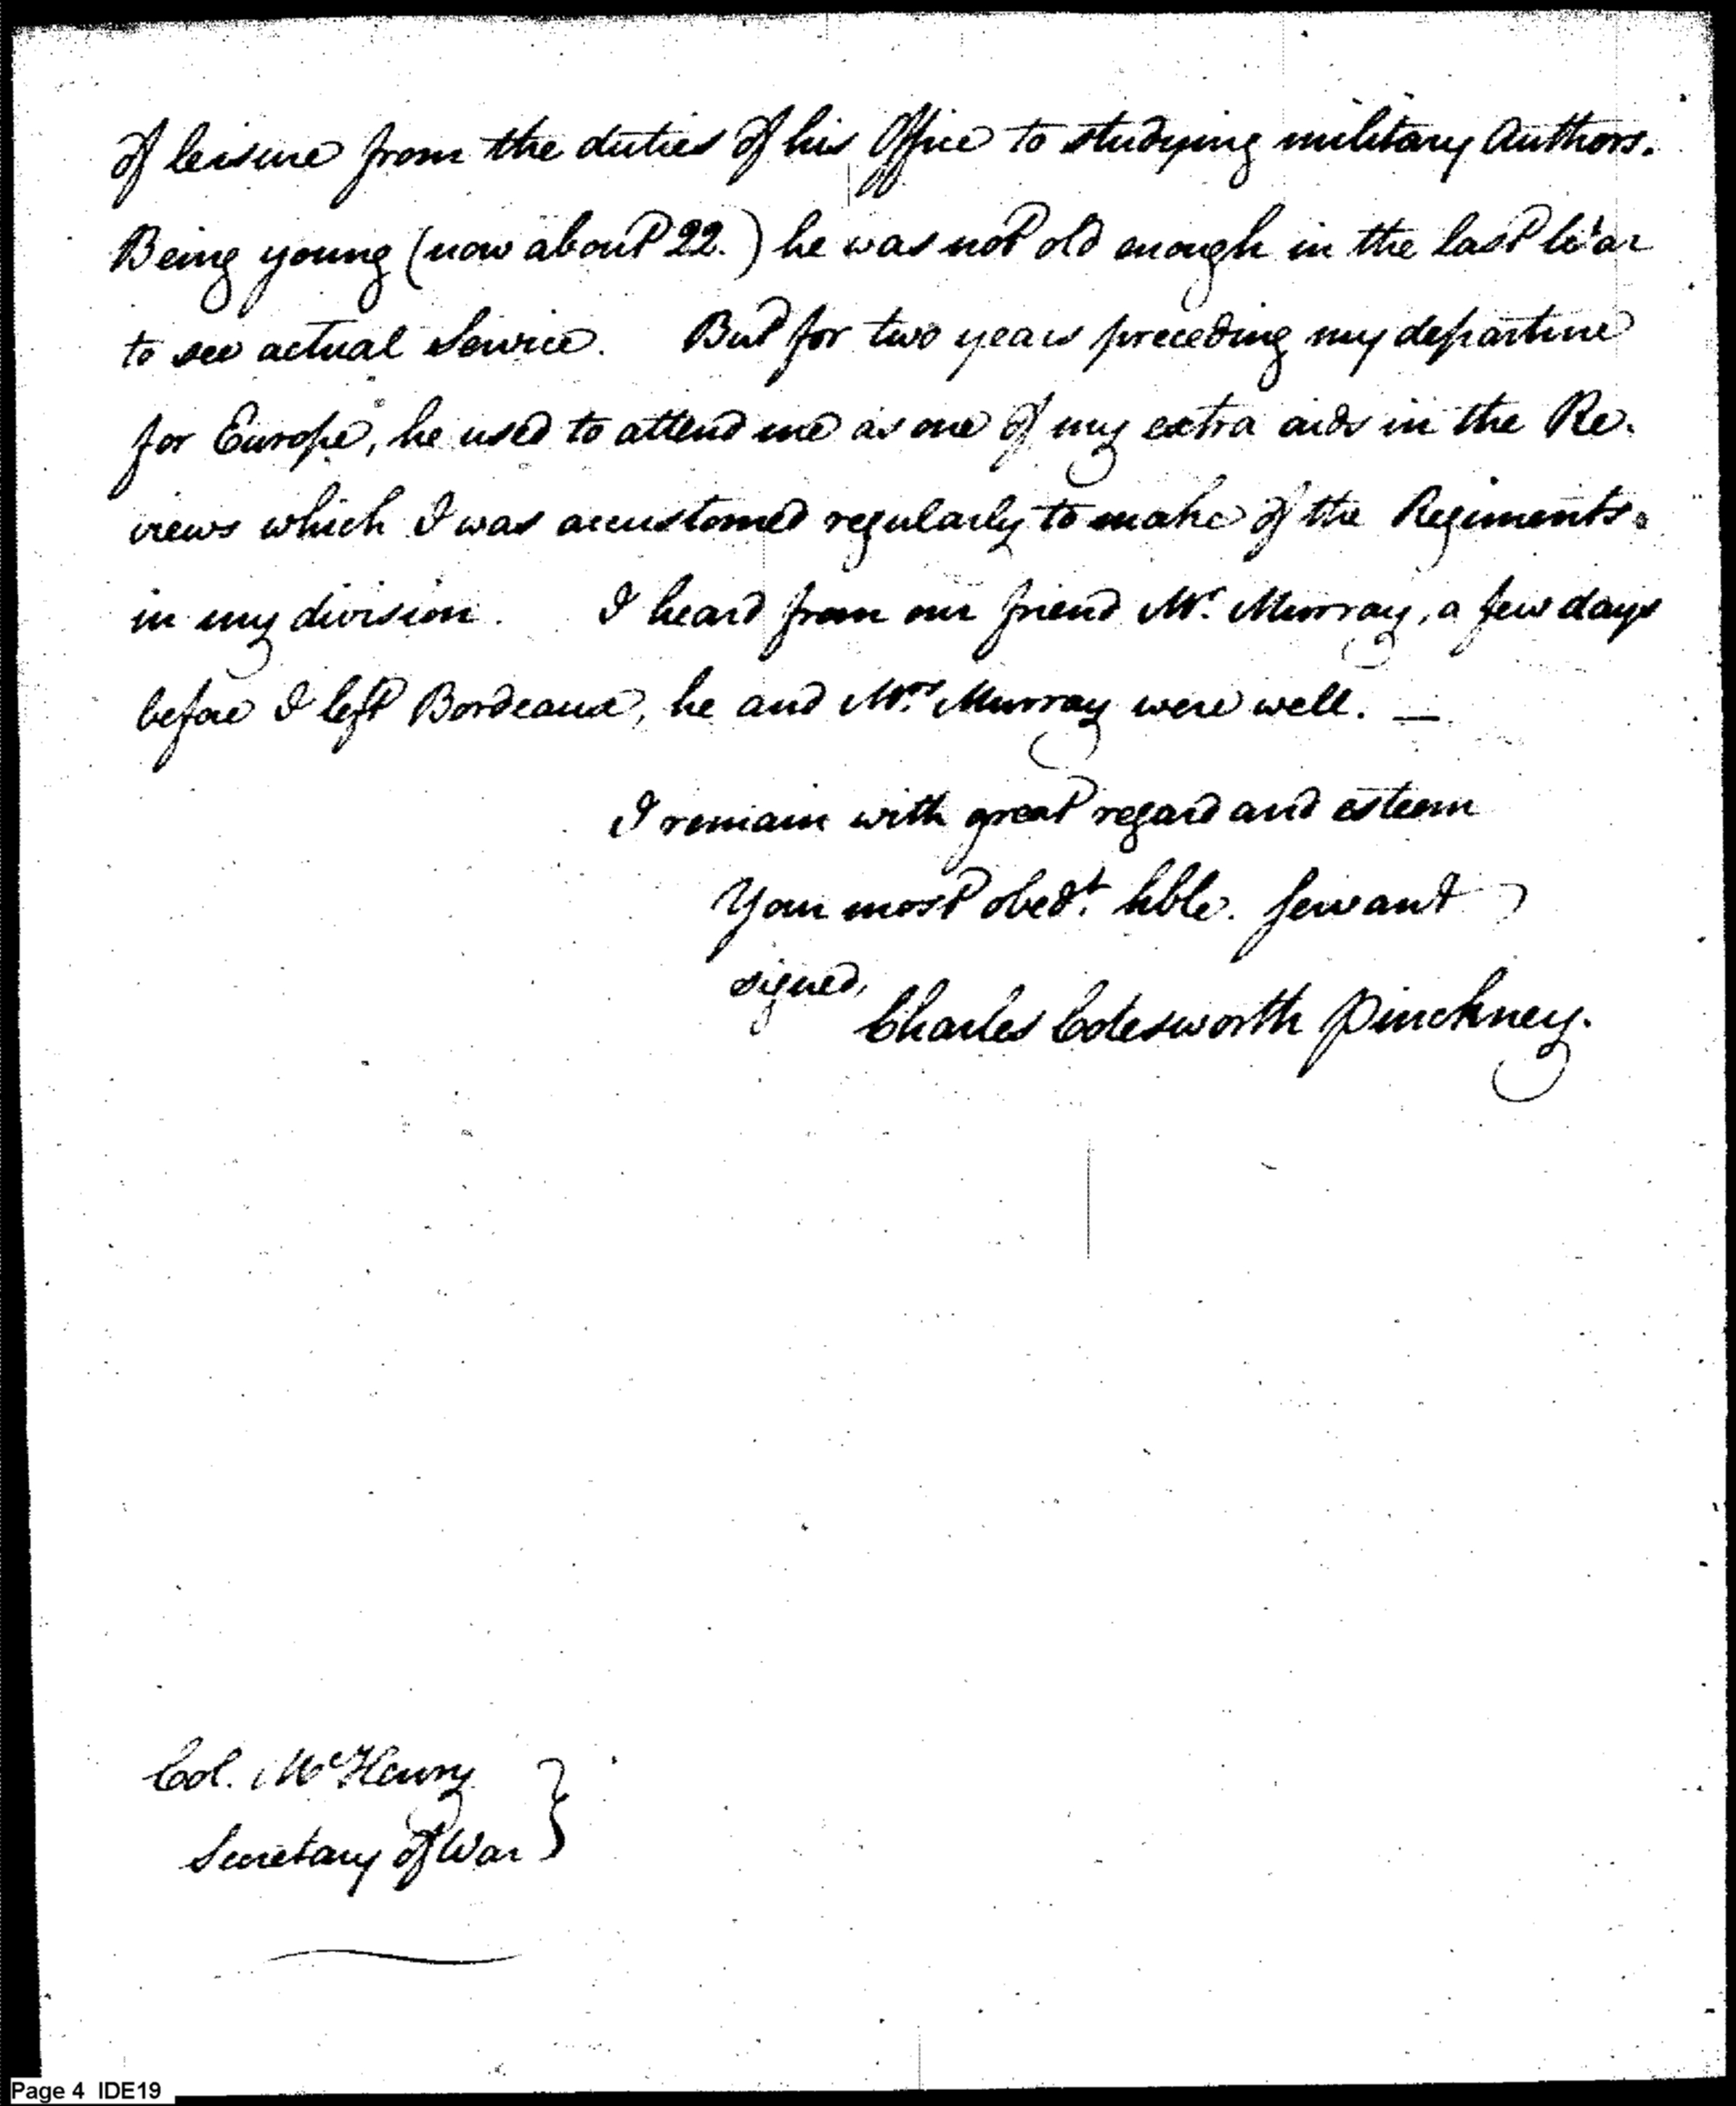 of leisure from the duties of his Office to studying military Authors.
Being young (now about 22.) he was not old enough in the last War
to see actual Service. But for two years preceding my departure
for Europe, he used to attend me as one of my extra aids in the Re-
views which I was accustomed regularly to make of the Regiments
in my division. I heard from our friend Mr. Murray, a few days
before I left Bordeaux, he and Mrs. Murray were well. —
I remain with great regard and esteem
Your most obedt. hble. servant
signed,
Charles Cotesworth Pinckney.
Col. McHenry
Secretary of War }
Page 4 IDE19